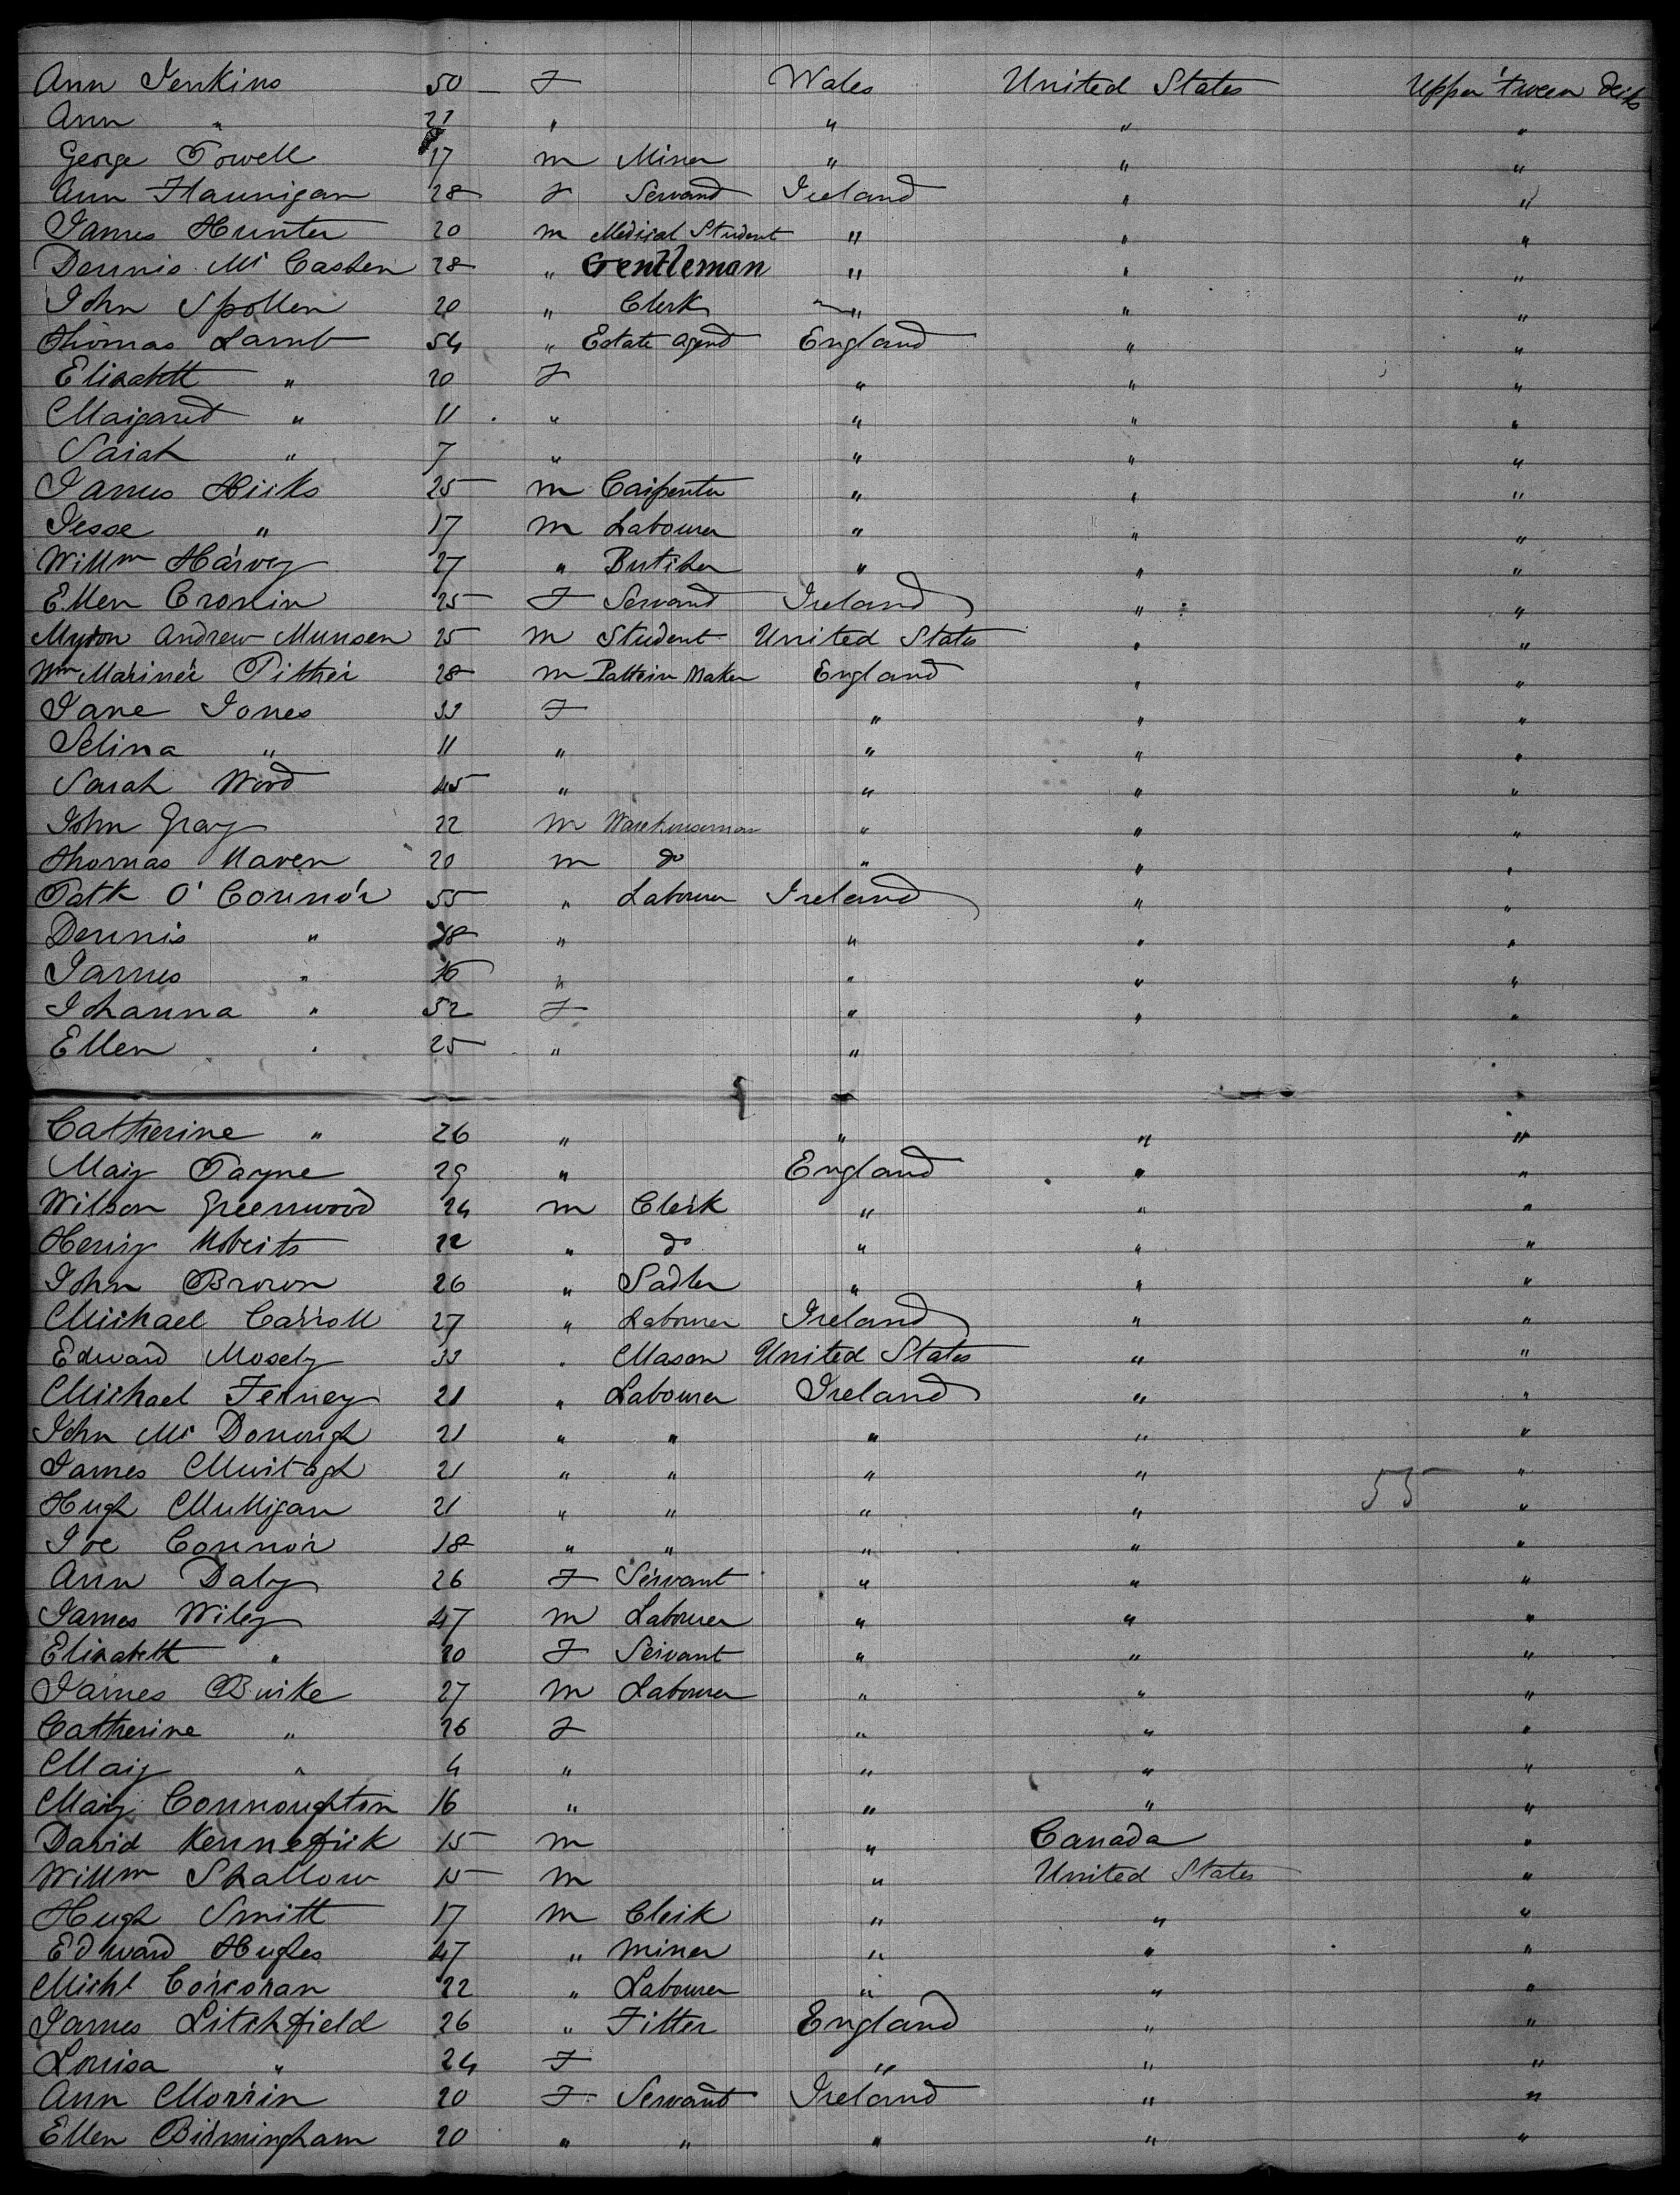 Ann Jenkins 50 F Wales United States Upper 'tween decks
Ann " 21 " " " "
George Powell 17 m Miner " " "
Ann Flannigan 28 F Servant Ireland " "
James Hunter 20 m Medical Student " " "
Dennis Mc Casken 28 " Gentleman " " "
John Spollen 20 " Clerk " " "
Thomas Lamb 54 " Estate Agent England " "
Elizabeth " 20 F " " "
Margaret " 11 " " " "
Sarah " 7 " " " "
James Hicks 25 m Carpenter " " "
Jesse " 17 m Labourer " " "
Willm Harvey 27 " Butcher " " "
Ellen Cronin 25 F Servant Ireland " "
Myron Andrew Munsen 25 m Student United States " "
Wm Mariner Pither 28 m Pattern Maker England " "
Jane Jones 33 F " " "
Selina " 11 " " " "
Sarah Wood 45 " " " "
John Gray 22 m Warehouseman " " "
Thomas Raven 20 m do " " "
Patk O'Connor 55 " Labourer Ireland " "
Dennis " 18 " " " "
James " 16 " " " "
Johanna " 52 F " " "
Ellen " 25 " "
Catherine " 26 " " " "
Mary Payne 29 " England " "
Wilson Greenwood 24 m Clerk " " "
Henry Roberts 22 " do " " "
John Brown 26 " Sadler " " "
Michael Carroll 27 " Labourer Ireland " "
Edward Mosely 33 " Mason United States " "
Michael Ferney 21 " Labourer Ireland " "
John Mc Donough 21 " " " " "
James Murtagh 21 " " " " 55 "
Hugh Mulligan 21 " " " " "
Joe Connor 18 " " " " "
Ann Daly 26 F Servant " " "
James Wiley 47 m Labourer " " "
Elizabeth " 20 F Servant " " "
James Burke 27 m Labourer " " "
Catherine " 26 F " " "
Mary " 4 " " " "
Mary Connoughton 16 " " " "
David Kennefick 15 m " Canada "
Willm Shallow 15 m " United States "
Hugh Smith 17 m Clerk " " "
Edward Hughes 47 " miner " " "
Michl Corcoran 22 " Labourer " " "
James Litchfield 26 " Fitter England " "
Louisa " 24 F " " "
Ann Morrin 20 F Servant Ireland " "
Ellen Birmingham 20 " " " " "